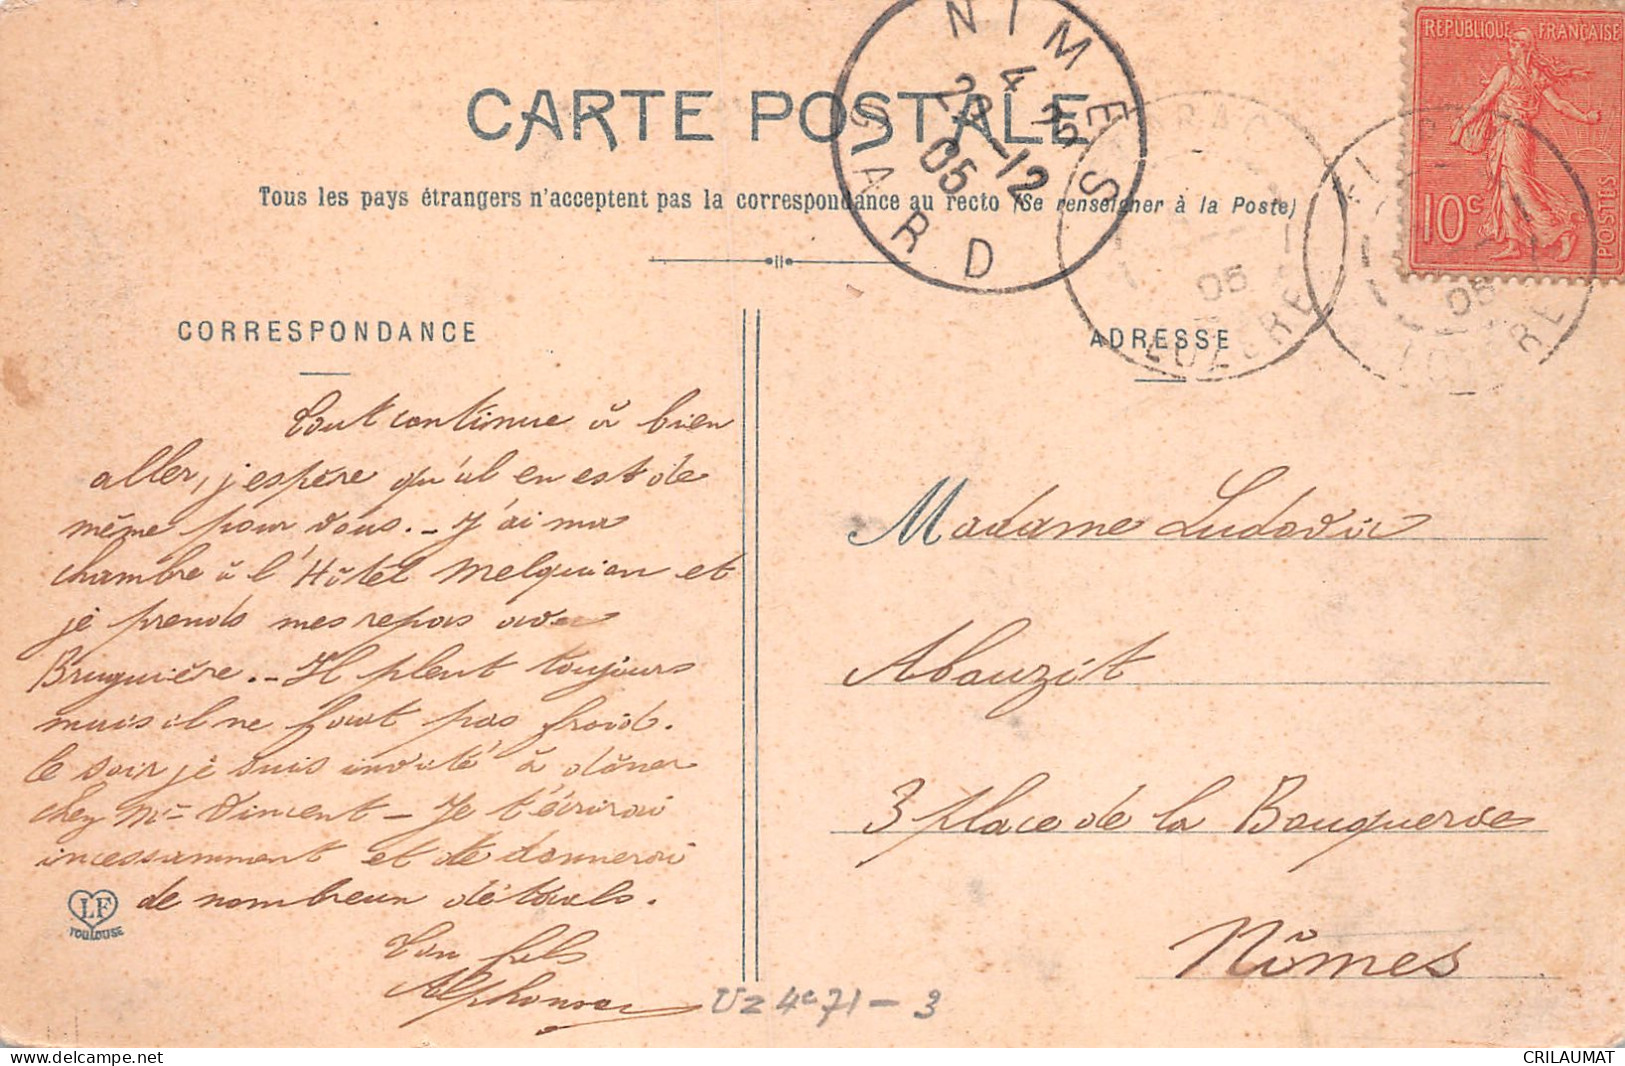 CARTE POSTALE
Tous les pays étrangers n'acceptent pas la correspondance au recto (Se renseigner à la Poste)
NIMES
4 30
29-12
05
GARD
REPUBLIQUE FRANÇAISE
10c
POSTES
FLORAC
05
LOZÈRE
FLORAC
05
LOZÈRE
CORRESPONDANCE
Tout continue à bien
aller, j'espère qu'il en est de
même pour vous. - J'ai ma
chambre à l'Hôtel Melquion et
je prends mes repas avec
Bruguière. - Il pleut toujours
mais il ne fait pas froid.
Ce soir je suis invité à dîner
chez Mr Vincent - Je t'écrirai
incessamment et te donnerai
de nombreux détails.
Ton fils
Alphonse
LF
TOULOUSE
ADRESSE
Madame Ludovic
Abauzit
3 place de la Bouquerie
Nîmes
Uz 4e71-3
CRILAUMAT
www.delcampe.net